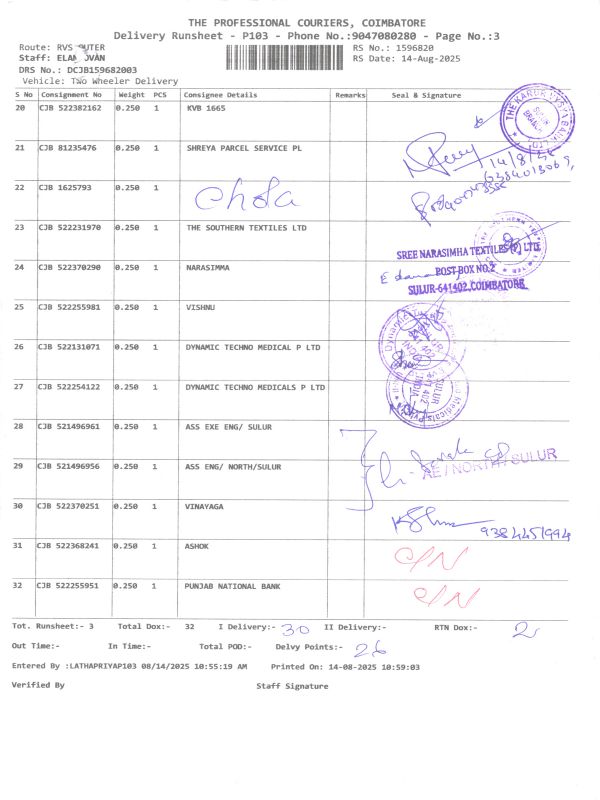 THE PROFESSIONAL COURIERS, COIMBATORE
Delivery Runsheet - P103 - Phone No.:9047080280 - Page No.:3
Route: RVS OUTER
RS No.: 1596820
Staff:
RS Date: 14-Aug-2025
DRS No.: DCJB159682003
Vehicle: Two Wheeler Delivery
S No Consignment No Weight PCS Consignee Details Remarks Seal & Signature
20 CJB 522382162 0.250 1 KVB 1665
21 CJB 81235476 0.250 1 SHREYA PARCEL SERVICE PL
14/8/25
22 CJB 1625793 0.250 1 Chola
23 CJB 522231970 0.250 1 THE SOUTHERN TEXTILES LTD
SREE NARASIMHA TEXTILES (P) LTD.
24 CJB 522370290 0.250 1 NARASIMMA
POST BOX NO.2
SULUR-641402, COIMBATORE
25 CJB 522255981 0.250 1 VISHNU
26 CJB 522131071 0.250 1 DYNAMIC TECHNO MEDICAL P LTD
27 CJB 522254122 0.250 1 DYNAMIC TECHNO MEDICALS P LTD
SULUR
641 402
INDIA
28 CJB 521496961 0.250 1 ASS EXE ENG/ SULUR
29 CJB 521496956 0.250 1 ASS ENG/ NORTH/SULUR
AE / NORTH / SULUR
30 CJB 522370251 0.250 1 VINAYAGA
9384451994
31 CJB 522368241 0.250 1 ASHOK
C/N
32 CJB 522255951 0.250 1 PUNJAB NATIONAL BANK
C/N
Tot. Runsheet:- 3 Total Dox:- 32 I Delivery:- 30 II Delivery:- RTN Dox:- 2
Out Time:- In Time:- Total POD:- Delvy Points:- 26
Entered By :LATHAPRIYAP103 08/14/2025 10:55:19 AM Printed On: 14-08-2025 10:59:03
Verified By Staff Signature